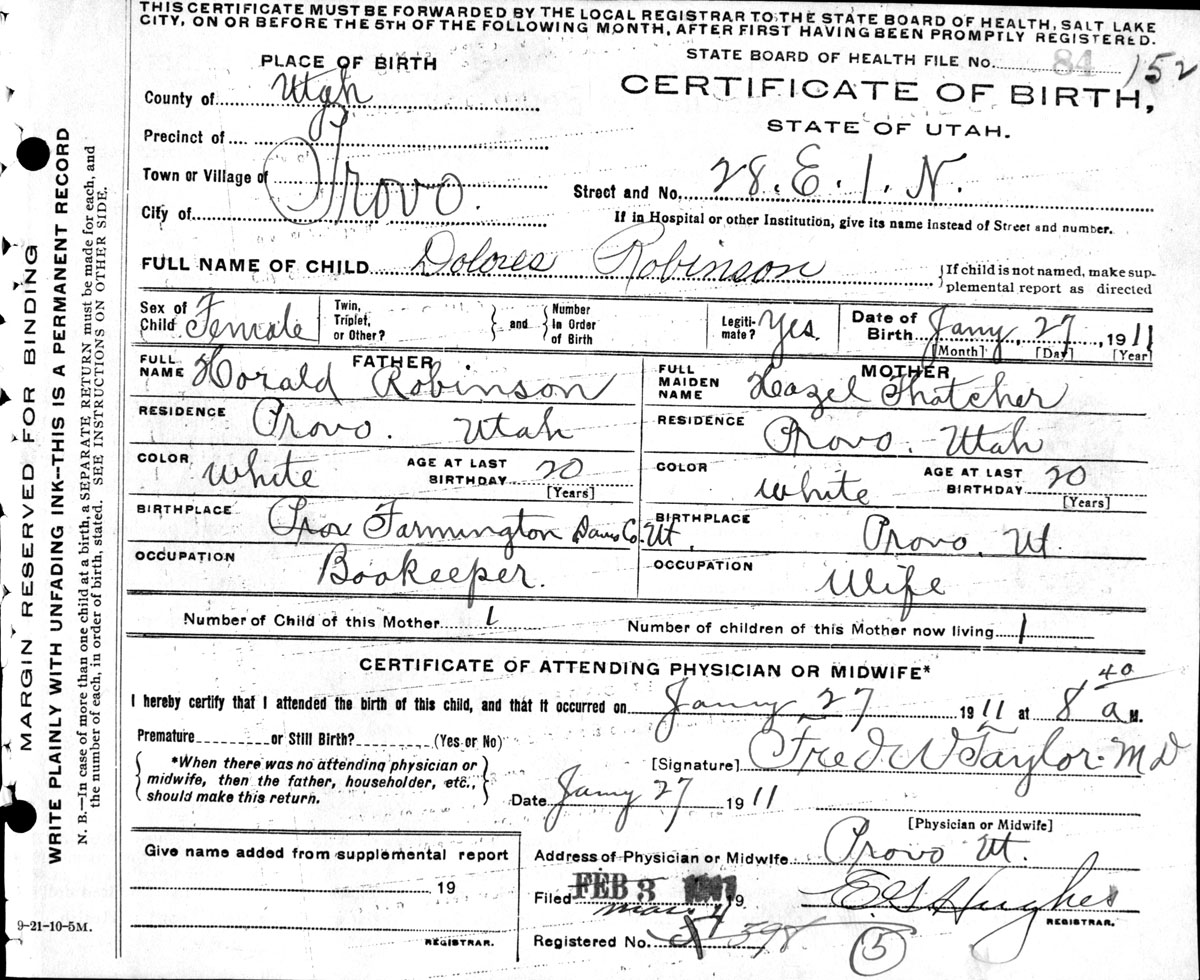 THIS CERTIFICATE MUST BE FORWARDED BY THE LOCAL REGISTRAR TO THE STATE BOARD OF HEALTH, SALT LAKE
CITY, ON OR BEFORE THE 5TH OF THE FOLLOWING MONTH, AFTER FIRST HAVING BEEN PROMPTLY REGISTERED.
MARGIN RESERVED FOR BINDING
WRITE PLAINLY WITH UNFADING INK--THIS IS A PERMANENT RECORD
N. B.--In case of more than one child at a birth, a SEPARATE RETURN must be made for each, and
the number of each, in order of birth, stated. SEE INSTRUCTIONS ON OTHER SIDE.
PLACE OF BIRTH
STATE BOARD OF HEALTH FILE No. 84 152
County of Utah
CERTIFICATE OF BIRTH,
STATE OF UTAH.
Precinct of
Town or Village of Provo.
Street and No. 28. E. 1. N.
City of
If in Hospital or other Institution, give its name instead of Street and number.
FULL NAME OF CHILD Dolores Robinson {If child is not named, make sup-
plemental report as directed
Sex of Child Female Twin, Triplet, or Other? } and { Number in Order of Birth Legiti- mate? Yes. Date of Birth Jany. 27, 1911
[Month] [Day] [Year]
FATHER MOTHER
FULL NAME Horald Robinson FULL MAIDEN NAME Hazel Thatcher
RESIDENCE Provo. Utah RESIDENCE Provo. Utah
COLOR White AGE AT LAST BIRTHDAY 20 [Years] COLOR White AGE AT LAST BIRTHDAY 20 [Years]
BIRTHPLACE Farmington Davis Co. Ut. BIRTHPLACE Provo. Ut.
OCCUPATION Bookeeper. OCCUPATION Wife
Number of Child of this Mother 1 Number of children of this Mother now living 1
CERTIFICATE OF ATTENDING PHYSICIAN OR MIDWIFE*
I hereby certify that I attended the birth of this child, and that it occurred on Jany 27 1911 at 8 40 a M.
Premature or Still Birth? (Yes or No)
*When there was no attending physician or
midwife, then the father, householder, etc.,
should make this return.
[Signature] Fred W Taylor. MD
Date Jany 27 1911
[Physician or Midwife]
Give name added from supplemental report
Address of Physician or Midwife Provo Ut.
19
Filed FEB 3 19
mar. 4
E. G Hughes
REGISTRAR.
REGISTRAR.
Registered No. 398
5
9-21-10-5M.